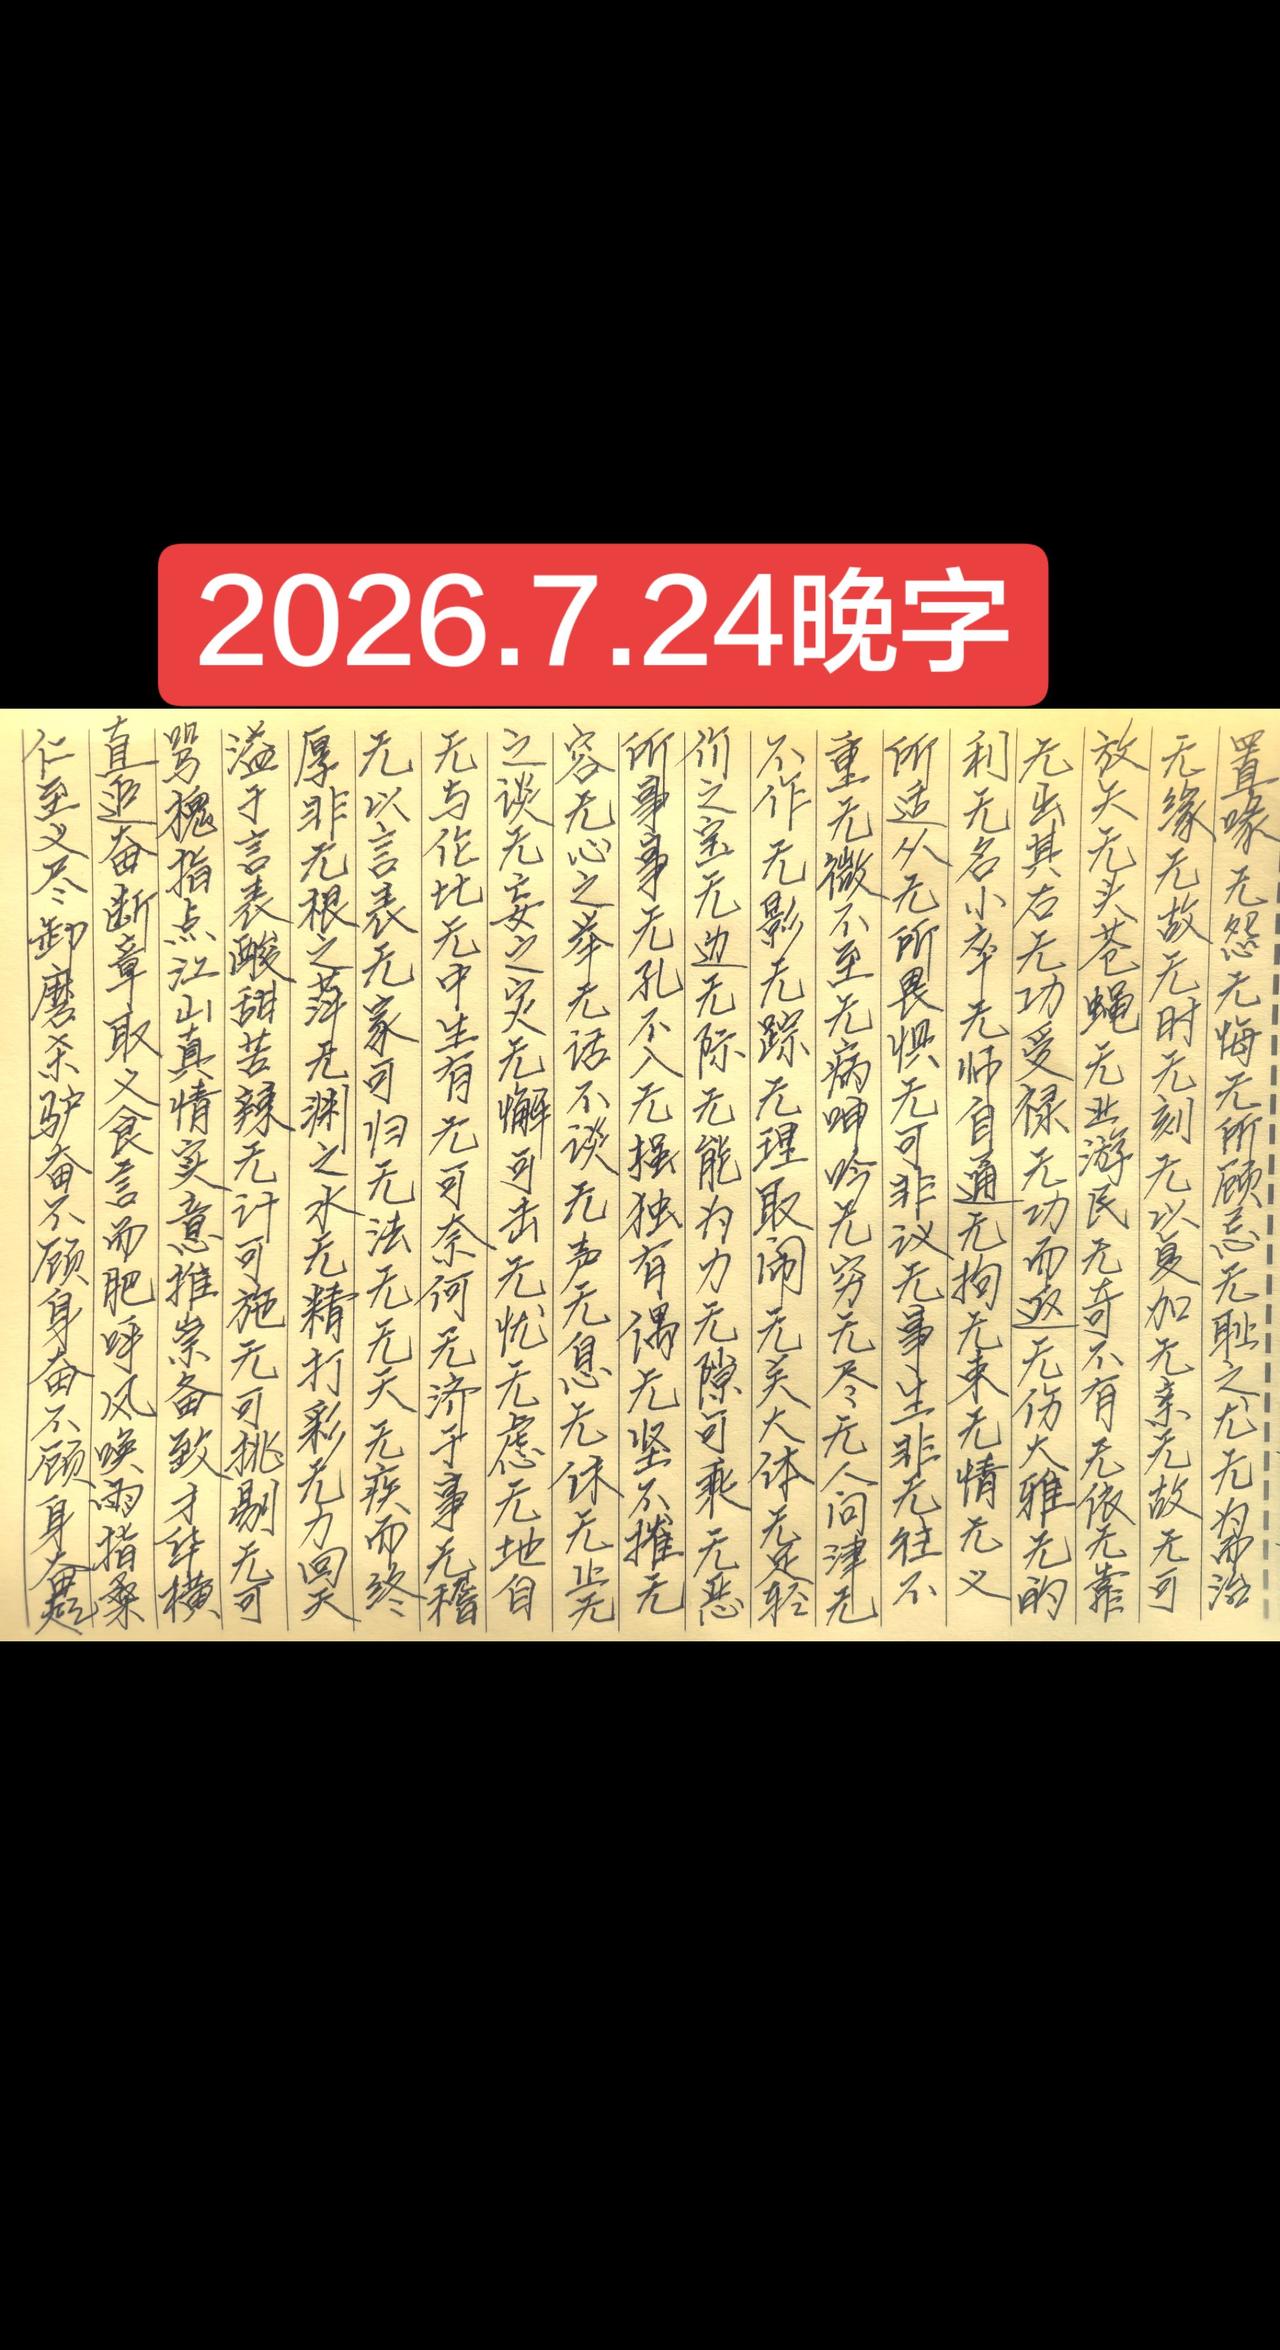 2026.7.24晚字
置喙无怨无悔无所顾忌无耻之尤无为而治
无缘无故无时无刻无以复加无亲无故无可
放矢无头苍蝇无业游民无奇不有无依无靠
无出其右无功受禄无功而返无伤大雅无的
利无名小卒无师自通无拘无束无情无义
所适从无所畏惧无可非议无事生非无往不
重无微不至无病呻吟无穷无尽无人问津无
不作无影无踪无理取闹无关大体无足轻
价之宝无边无际无能为力无隙可乘无恶
所事事无孔不入无独有偶无坚不摧无
容无心之举无话不谈无声无息无休无止无
之谈无妄之灾无懈可击无忧无虑无地自
无与伦比无中生有无可奈何无济于事无稽
无以言表无家可归无法无无天无疾而终
厚非无根之萍无渊之水无精打彩无力回天
溢于言表酸甜苦辣无计可施无可挑剔无可
骂槐指点江山真情实意推崇备致才华横
直追奋断章取义食言而肥呼风唤雨指桑
仁至义尽卸磨杀驴奋不顾身奋不顾身奋起